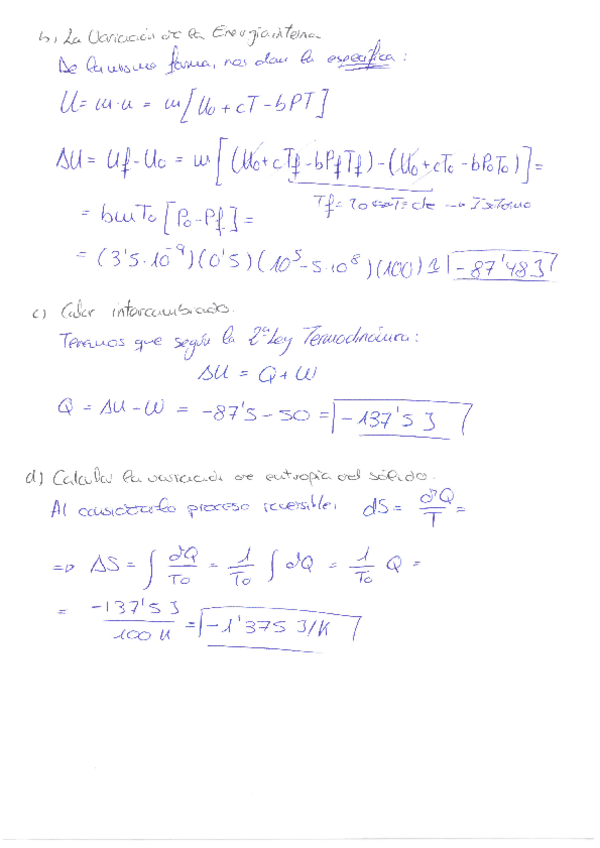 b, La Variación de la Energía interna.
De la misma forma, nos dan la específica:
U = m·u = m[U₀ + cT - bPT]
ΔU = Uf - U₀ = m[(U₀ + cTf - bPfTf) - (U₀ + cT₀ - bP₀T₀)] =
Tf = T₀ T = cte → Isotermo
= bmT₀[P₀ - Pf] =
= (3'5·10⁻⁹)(0'5)(10⁵ - 5·10⁸)(100) -87'48 J
c) Calor intercambiado.
Tenemos que según la 2ª Ley Termodinámica:
ΔU = Q + W
Q = ΔU - W = -87'5 - 50 = -137'5 J
d) Calcular la variación de entropía del sólido.
Al considerarlo proceso reversible, dS = đQ/T =
=> ΔS = ∫ đQ/T₀ = 1/T₀ ∫ đQ = 1/T₀ Q =
= -137'5 J / 100 K = -1'375 J/K